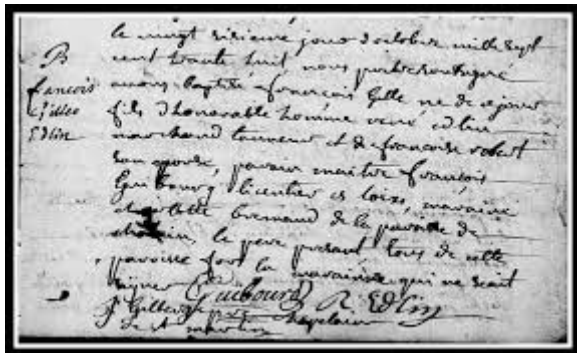 le vingt sixieme jour d'octobre mille sept
cent trante huit nous prestre soussigné
B
avons baptisé francois Gille ne de ce jour
francois
Gilles
Edlin
fils d'honorable homme rené edlin
marchand tanneur et de francoise robert
son epouse, parain maitre francois
Guibourg licentier es loixs, maraine
charlotte bremaud de la paroisse de
le pere presant tous de cette
paroisse fors la maraine qui ne scait
signer
Guibourg R EDlin
J Gilbert chapelain
de st martin